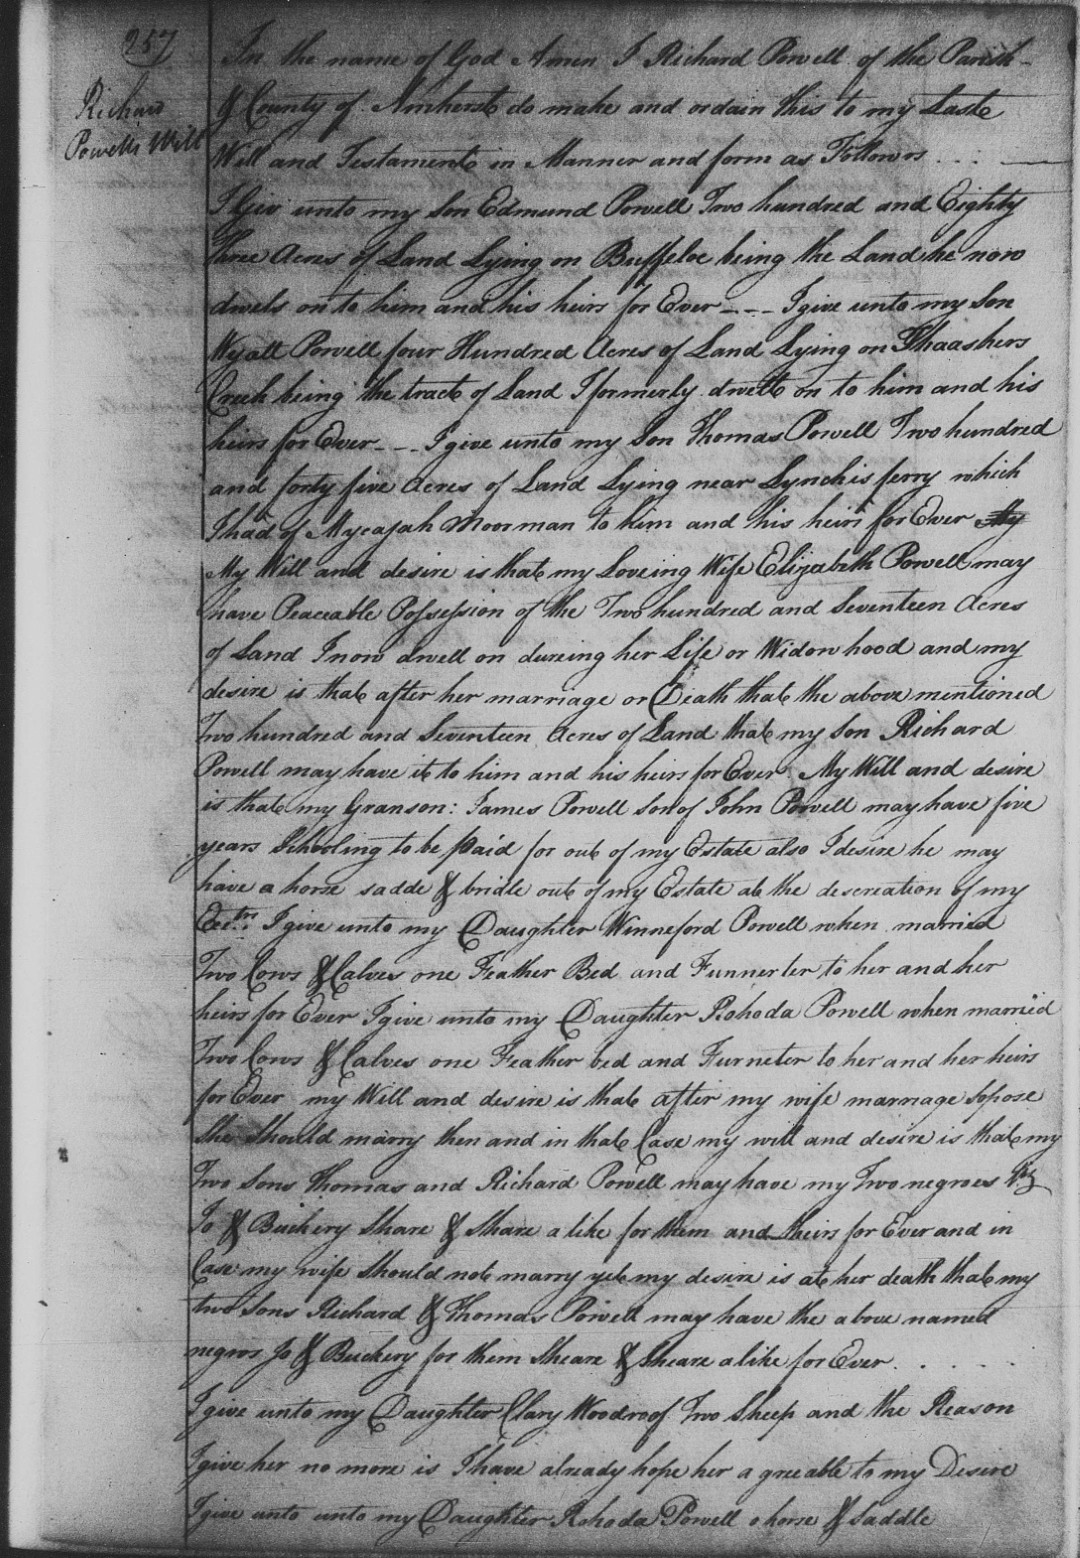 257
Richard
Powells Will
In the name of God Amen I Richard Powell of the Parish
& County of Amherst do make and ordain this to my Last
Will and Testament in Manner and form as Follows . . . .
I Giv unto my Son Edmund Powell Two hundred and Eighty
three Acres of Land Lying on Buffeloe being the Land he now
dwels on to him and his heirs for Ever - - - I give unto my Son
Wyatt Powell four Hundred Acres of Land Lying on Thrashers
Creek being the tract of Land I formerly dwelt on to him and his
heirs for Ever - - - I give unto my Son Thomas Powell Two hundred
and forty five Acres of Land Lying near Lynchis ferry which
I had of Mycajah Moorman to him and his heirs for Ever My
My Will and desire is that my Loveing Wife Elizabeth Powell may
have Peaceable Possession of the Two hundred and Seventeen Acres
of Land I now dwell on dureing her Life or Widowhood and my
desire is that after her marriage or Death that the above mentioned
Two hundred and Seventeen Acres of Land that my Son Richard
Powell may have it to him and his heirs for Ever. My Will and desire
is that my Granson: James Powell son of John Powell may have five
years Schooling to be paid for out of my Estate also I desire he may
have a horse sadde & bridle out of my Estate at the descreation of my
Exetrs. I give unto my Daughter Winneford Powell when married
Two Cows & Calves one Feather Bed and Funnerter to her and her
heirs for Ever I give unto my Daughter Rohoda Powell when married
Two Cows & Calves one Feather bed and Furneter to her and her heirs
for Ever my Will and desire is that after my wife marriage Sopose
She Should marry then and in that Case my will and desire is that my
Two Sons Thomas and Richard Powell may have my Two negroes Viz
Jo & Buckery Share & Share alike for them and theirs for Ever and in
Case my wife Should not marry yet my desire is at her death that my
two Sons Richard & Thomas Powell may have the above named
negros Jo & Buckery for them Sheare & Sheare alike for Ever . . . .
I give unto my Daughter Clary Woodroof Two Sheep and the Reason
I give her no more is I have already hope her agreeable to my Desire
I give unto unto my Daughter Rohoda Powell a horse & Saddle